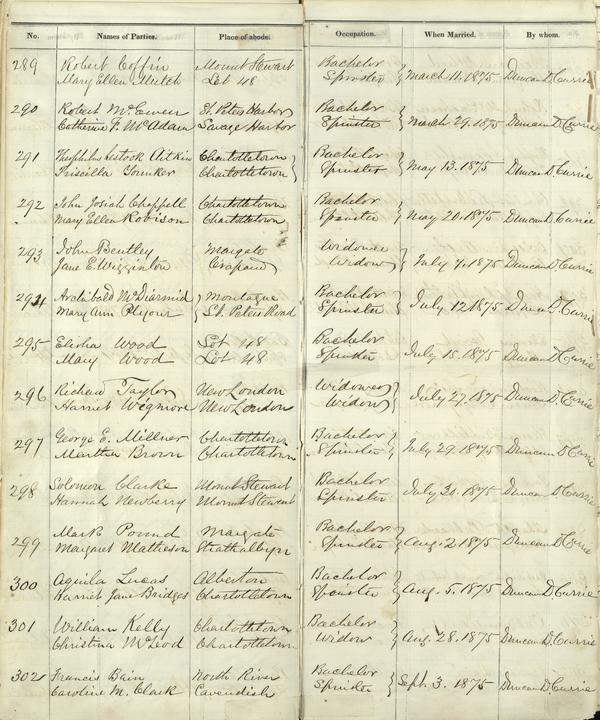 No. Names of Parties. Place of abode. Occupation. When Married. By whom.
289 Robert Coffin Mount Stewart Bachelor
Mary Ellen Mutch Lot 48 Spinster March 11. 1875 Duncan D. Currie
290 Robert McEwen St. Peters Harbor Bachelor
Catherine F. McAdam Savage Harbor Spinster March 29. 1875 Duncan D. Currie
291 Theophilus Aitkin Charlottetown Bachelor
Priscilla Charlottetown Spinster May 13. 1875 Duncan D. Currie
292 John Josiah Chappell Charlottetown Bachelor
Mary Ellen Robison Charlottetown Spinster May 20. 1875 Duncan D. Currie
293 John Bentley Margate Widower
Jane E. Wigginton Crapaud Widow July 7. 1875 Duncan D. Currie
294 Archibald McDiarmid Montague Bachelor
Mary Ann St. Peters Road Spinster July 12 1875 Duncan D. Currie
295 Elisha Wood Lot 48 Bachelor
Mary Wood Lot 48 Spinster July 15. 1875 Duncan D. Currie
296 Richard Taylor New London Widower
Harriet Wigmore New London Widow July 27. 1875 Duncan D. Currie
297 George E. Millner Charlottetown Bachelor
Martha Brown Charlottetown Spinster July 29. 1875 Duncan D. Currie
298 Solomon Clarke Mount Stewart Bachelor
Hannah Newberry Mount Stewart Spinster July 30. 1875 Duncan D. Currie
299 Mark Pound Margate Bachelor
Margaret Matheson Strathalbyn Spinster Aug. 2 1875 Duncan D. Currie
300 Aquila Lucas Alberton Bachelor
Harriet Jane Bridges Charlottetown Spinster Aug. 5. 1875 Duncan D. Currie
301 William Kelly Charlottetown Bachelor
Christina McLeod Charlottetown Widow Aug. 28. 1875 Duncan D. Currie
302 Francis Bain North River Bachelor
Caroline M. Clark Cavendish Spinster Sept. 3. 1875 Duncan D. Currie